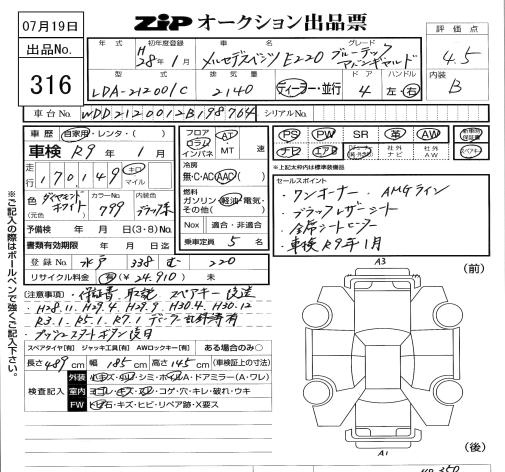 07月19日
出品No.
316
ZiP オークション出品票
評価点
4.5
内装
B
年式 初年度登録 車名 グレード
H28年1月 メルセデスベンツ E220 ブルーテック アバンギャルド
型式 排気量 ドア ハンドル
LDA-212001C 2140 ディーラー・並行 4 左・右
車台No. WDD2120012B198764 シリアルNo.
車歴 自家用・レンタ・( )
車検 R9年1月
走行 170,149 キロ マイル
色 ダイヤモンドホワイト (元色) カラーNo. 799 内装色 ブラック系
予備検 年 月 日(3・8)No.
書類有効期限 年 月 日迄
登録No. 水戸 338 む 220
リサイクル料金 有(¥ 24,910) 未
フロア コラム インパネ AT MT 速
冷房 無・C・AC(AAC)( )
燃料 ガソリン・軽油・電気・その他( )
Nox 適合・非適合
乗車定員 5 名
PS PW SR 革 AW
ナビ 社外AW
※上記太枠内は標準装備品
セールスポイント
・ワンオーナー ・AMGライン
・ブラックレザーシート
・全席シートヒーター
・車検R9年1月
(注意事項)・保証書 取説 スペアキー 後送
H28.11. H29.4. H29.9. H30.4. H30.12
R3.1. R5.1. R7.1. ディーラー記録簿有
・プッシュスタートボタン後日
スペアタイヤ[有] ジャッキ工具[有] AWロックキー[有] ある場合のみ○
長さ489cm 幅185cm 高さ145cm (車検証上の寸法)
検査記入
外装 キズ・ ・シミ・ ・ドアミラー(A・ワレ)
室内 ヨゴレ・キズ・スレ・コゲ・穴・キレ・破れ・ウキ
FW 飛石・キズ・ヒビ・リペア跡・X要ス
※ご記入の際はボールペンで強くご記入下さい。
A3
(前)
A1
(後)